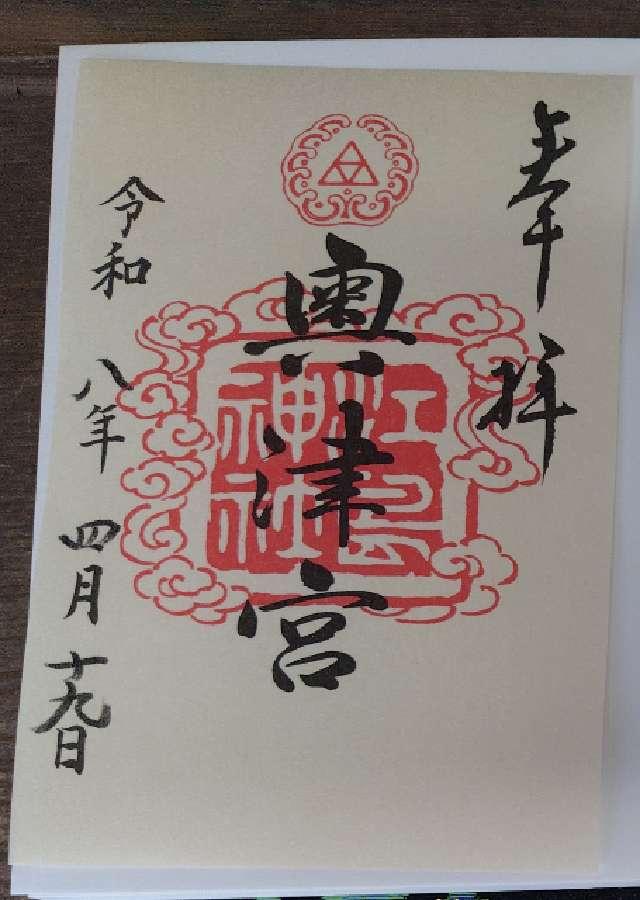 奉拝
奥津宮
江島神社
令和八年四月十九日